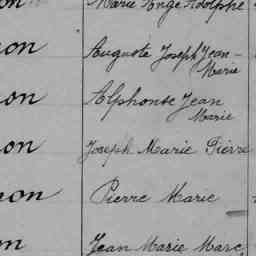 Marie Ange Adolphe
non Auguste Joseph Jean-
Marie
non Alphonse Jean
Marie
non Joseph Marie Pierre
non Pierre Marie
Jean Marie Marc